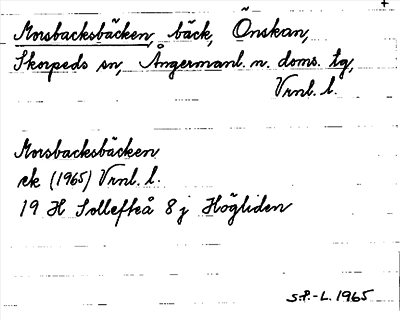 Morsbacksbäcken, bäck, Önskan,
Skorpeds sn, Ångermanl. n. doms. tg,
Vrnl. l.
Morsbacksbäcken
ek (1965) Vrnl. l.
19 H Sollefteå 8 j Högliden
S.P.-L. 1965